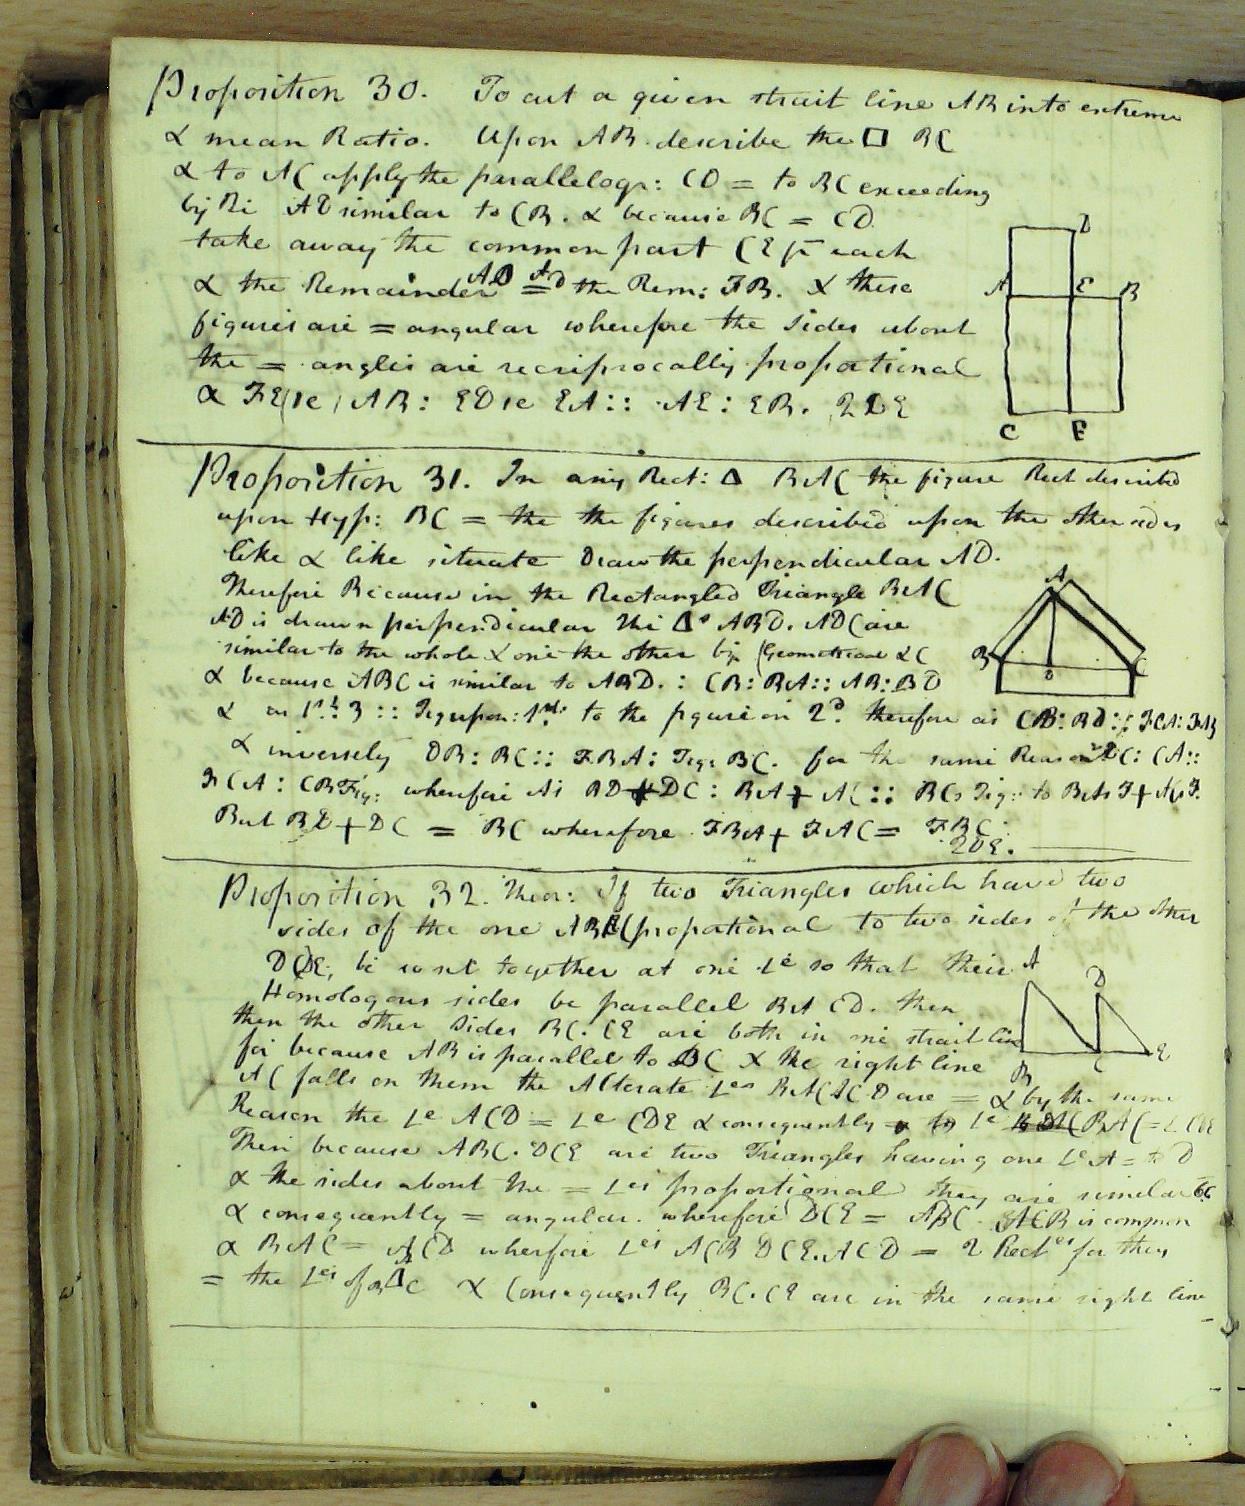 Proposition 30. To cut a given strait line AB into extreme
& mean Ratio. Upon AB describe the □ BC
& to AC apply the parallelogr: CD = to BC exceeding
by AD similar to CB. & because BC = CD
take away the common part CE fr each
& the Remainder AD = the Rem: FB. & these
figures are = angular wherefore the sides about
the = angles are reciprocally proportional
& FE ie AB: ED ie EA:: AE: EB. QDE
A D E B C F
Proposition 31. In any Rect: Δ BAC the figure Rect described
upon Hyp: BC = the the figures described upon the other sides
like & like situate Draw the perpendicular AD.
Therefore Because in the Rectangled Triangle BAC
AD is drawn perpendicular the Δs ABD. ADC are
similar to the whole & one the other by
& because ABC is similar to ABD.: CB: BA:: AB: BD
& as 1st: 3:: Fig upon: 1st to the figure on 2d. therefore as CB: BD::
& inversely DB: BC:: FBA: Fig: BC. for the same Reason DC: CA::
FCA: CB Fig: wherefore As BD + DC: BA + AC:: BCs Fig: to BAs F + ACs F.
But BD + DC = BC wherefore FBA + FAC = FBC
QDE.
A B D C
Proposition 32. Theor: If two Triangles which have two
sides of the one ABC proportional to two sides of the other
DCE, be so set together at one Le so that their
Homologous sides be parallel BA CD. then
then the other Sides BC. CE are both in one strait line
for because AB is parallel to DC & the right line
AC falls on them the Alterate Les BAC ACD are = & by the same
Reason the Le ACD = Le CDE & consequently Le BAC = L CDE
Then because ABC. DCE are two Triangles having one Le A = to D
& the sides about the = Les proportional they are similar
& consequently = angular. wherefore DCE = ABC. ACB is common
& BAC = ACD wherfore Les ACB DCE. ACD = 2 Rectes for they
= the Les of ABC & Consequently BC. CE are in the same right line
A D B C E